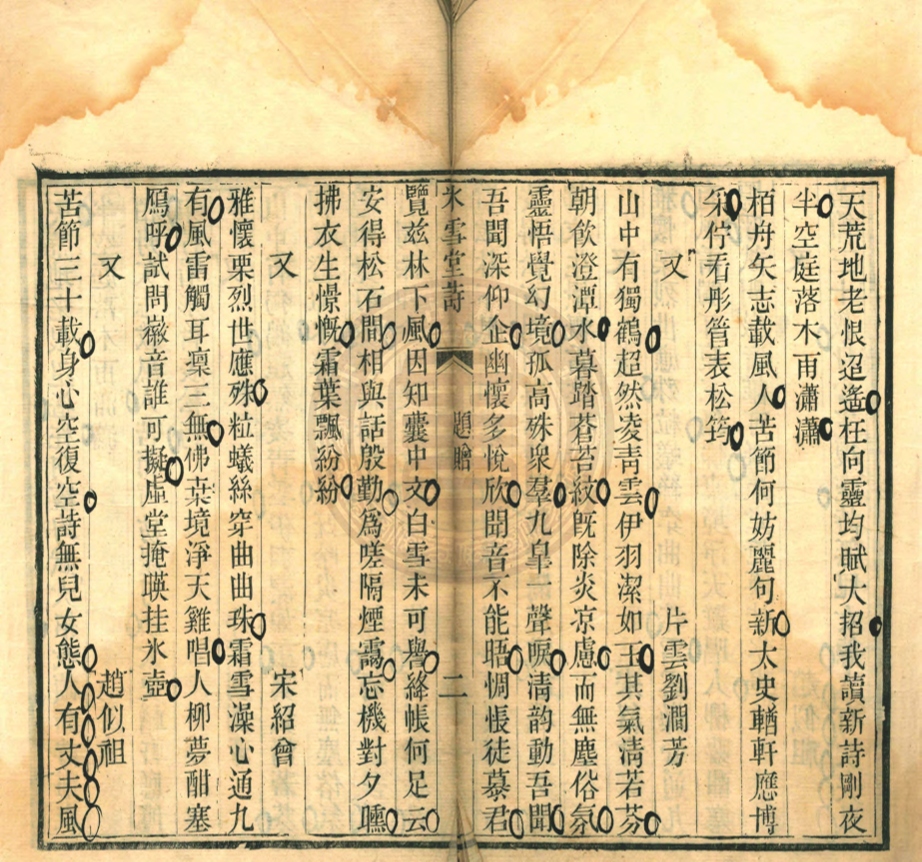 天荒地老恨迢遙枉向靈均賦大招我讀新詩剛夜
半空庭落木雨瀟瀟
栢舟矢志載風人苦節何妨麗句新太史輶軒應博
采佇看彤管表松筠
又 片雲劉澗芳
山中有獨鶴超然凌青雲伊羽潔如玉其氣清若芬
朝飲澄潭水暮踏蒼苔紋旣除炎凉慮而無塵俗氛
靈悟覺幻境孤高殊衆羣九臯一聲唳淸韵動吾聞
吾聞深仰企幽懷多悅欣聞音不能晤惆悵徒慕君
氷雪堂詩 題贈 二
覽茲林下風因知囊中文白雪未可譽絳帳何足云
安得松石間相與話殷勤爲嗟隔煙靄忘機對夕曛
拂衣生憬慨霜葉飄紛紛
又 宋紹會
雅懷栗烈世應殊粒蟻絲穿曲曲珠霜雪澡心通九
有風雷觸耳稟三無佛桒境淨天雞唱人柳夢酣塞
鴈呼試問徽音誰可擬虛堂掩暎挂氷壺
又 趙似祖
苦節三十載身心空復空詩無兒女態人有丈夫風